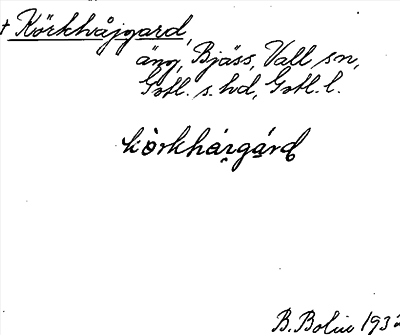 † Körkhåjgard,
äng, Bjäss, Vall sn,
Gotl. s. hd, Gotl. l.
körkhàrgárd
B. Bolin 1932